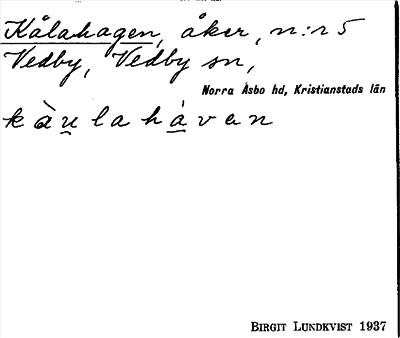 Kålahagen, åker, n:r 5
Vedby, Vedby sn,
Norra Åsbo hd, Kristianstads län
kàu̲lahá̲ven
BIRGIT LUNDKVIST 1937